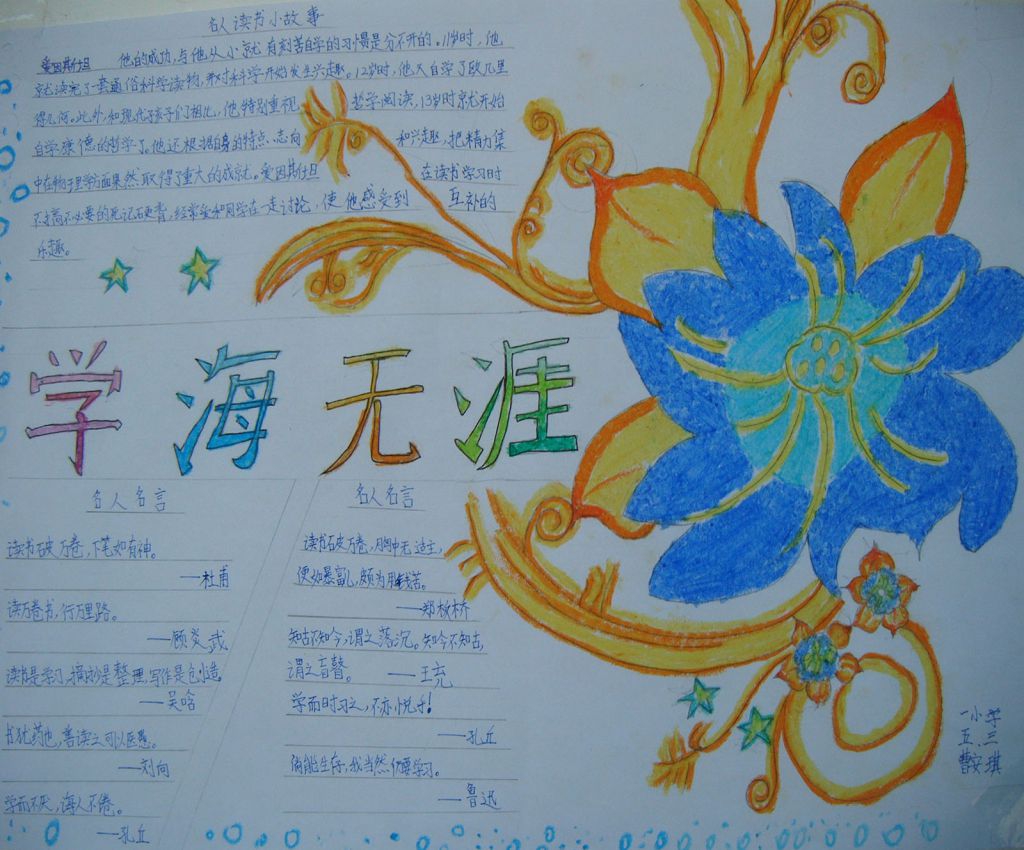 名人读书小故事
爱因斯坦 他的成功,与他从小就有刻苦自学的习惯是分不开的。11岁时,他
就读完了一套通俗科学读物,并对科学开始发生兴趣。12岁时,他又自学了欧几里
得几何。此外和现代孩子们相比,他特别重视 哲学阅读,13岁时就开始
自学康德的哲学了。他还根据自身的特点、志向 和兴趣,把精力集
中在物理学方面果然取得了重大的成就。爱因斯坦 在读书学习时
不搞不必要的死记硬背,经常爱和同学在一走讨论,使他感受到 互补的
乐趣。
学海无涯
名人名言
读书破万卷,下笔如有神。
——杜甫
读万卷书,行万里路。
——顾炎武
读书是学习,摘抄是整理,写作是创造。
——吴晗
书犹药也,善读之可以医愚。
——刘向
学而不厌,诲人不倦。
——孔丘
名人名言
读书破万卷,胸中无适主,
便如暴富儿,颇为用钱苦。
——郑板桥
知古不知今,谓之落沉。知今不知古,
谓之盲瞽。——王充
学而时习之,不亦悦乎!
——孔丘
倘能生存,我当然仍要学习。
——鲁迅
一小学
五.三
曹安琪